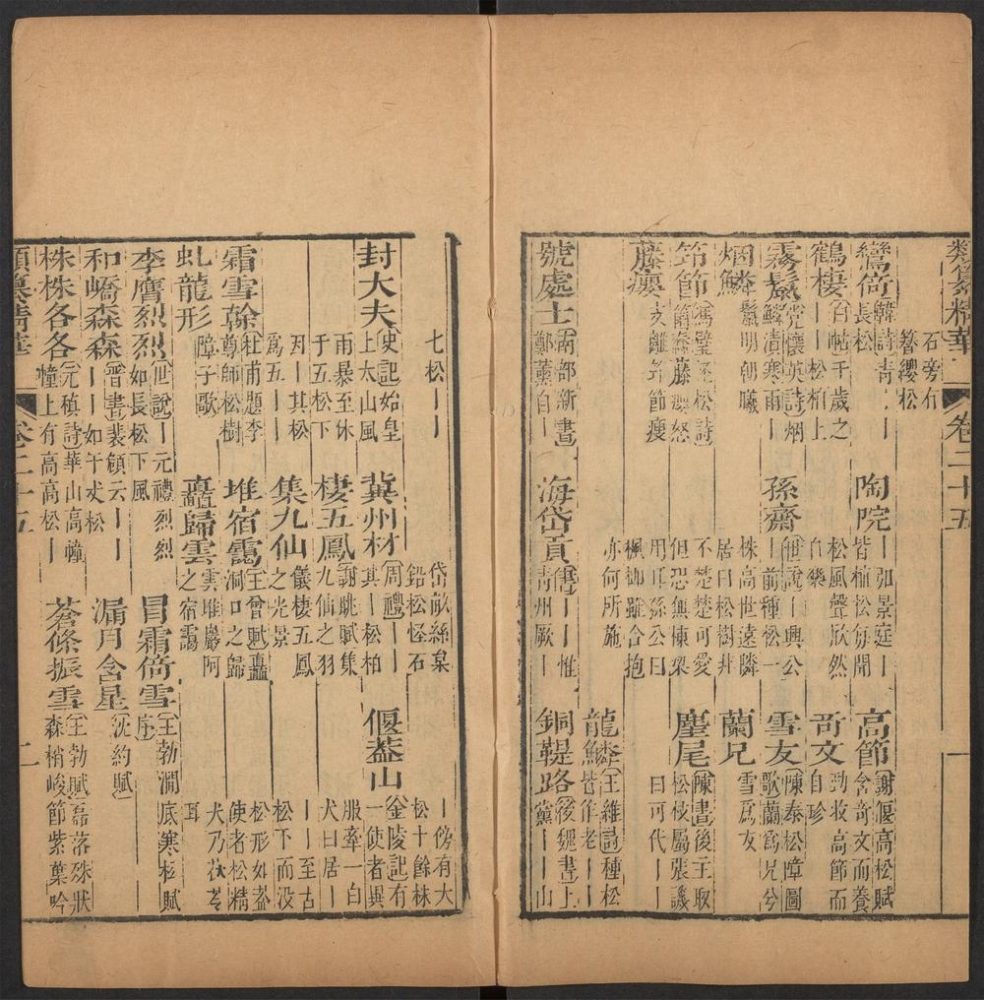 類纂精華 卷二十五 一
石旁有
簪纓松
鸞倚 韓詩青
長松
鶴棲 白帖千歲之
——松柏上
霧鬣 党懷英詩烟
鱗漬寒雨——
烟鱗 鬣明朝曦
筇節 馮璧松詩
筇節藤瘿怒
藤瘿 支離筇節瘦
號處士 南部新書
鄭薰自——
陶院 弘景庭——
皆植松每聞
松風聲欣然
自樂
孫齋 世說——興公
——前種松一
株高世遠隣
居曰松樹幷
不楚楚可愛
但恐無棟梁
用耳孫公曰
楓柳雖合抱
亦何所施
海岱貢 書——惟
青州厥——
高節 謝偃高松賦
含奇文而養
奇文 勁收高節而
自珍
雪友 陳泰松障圖
歌蘭爲兄兮
蘭兄 雪爲友
麈尾 陳書後主取
松枝屬張譏
曰可代——
龍鱗 王維詩種松
皆作老——
銅鞮路 後魏書上
黨——山
七松——
封大夫 史記始皇
上太山風
雨暴至休
于五松下
因——其松
爲五——
霜雪幹 杜甫題李
尊師松樹
虬龍形 障子歌
岱畎絲枲
鉛松怪石
冀州材 周禮——
其——松柏
棲五鳳 謝朓賦集
九仙之羽
集九仙 儀棲五鳳
之光景
堆宿靄 王曾賦矗
洞口之歸
矗歸雲 雲堆巖阿
之宿靄
——傍有大
松十餘株
偃蓋山 金陵記有
一使者異
服牽一白
犬曰居——
——至古
松下而没
松形如蓋
使者松精
犬乃茯苓
耳
李膺烈烈 世說——元禮烈烈
如長松下風
冒霜倚雪 王勃澗底寒松賦
序
和嶠森森 晉書裴頠云——
——如千丈松
漏月含星 沈約賦
株株各各 元稹詩華山高幢
幢上有高高松——
蒼條振雪 王勃賦磊落殊狀
森梢峻節紫葉吟
類纂精華 卷二十五 二